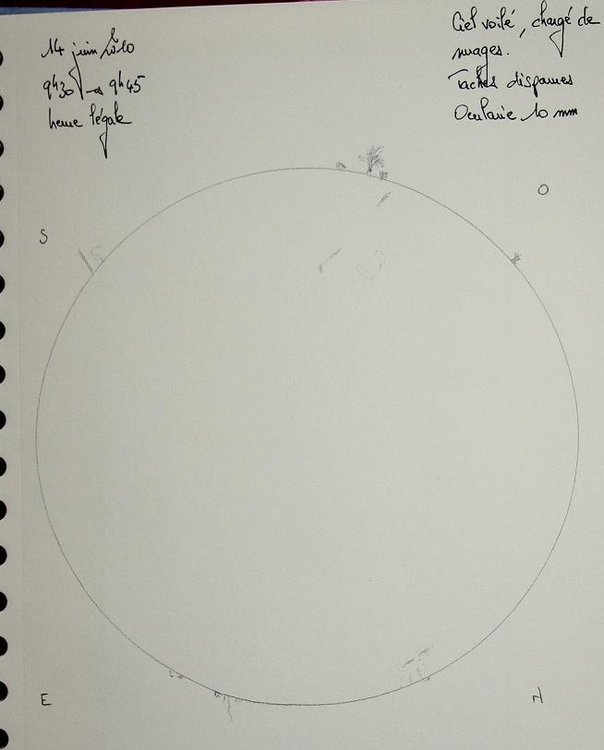 14 juin 2010
9h30 → 9h45
heure légale
Ciel voilé, chargé de
nuages.
Taches disparues
Oculaire 10 mm
O
S
E
N